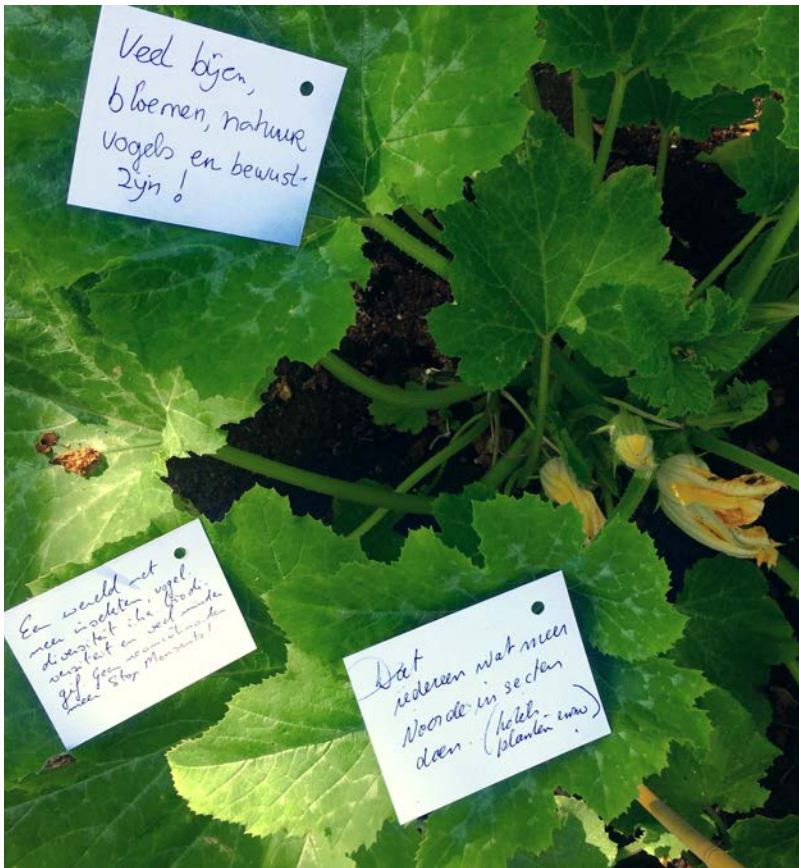 Veel bijen,
bloemen, natuur
vogels en bewust-
zijn!
Een wereld met
meer insekten, vogel.
diversiteit i.h.a. biodi.
versiteit en veel minder
gif. Geen neonicotinoiden
meer Stop Monsanto!
Dat
iedereen wat meer
voor de insecten
doen. (hotels
planten enzo)